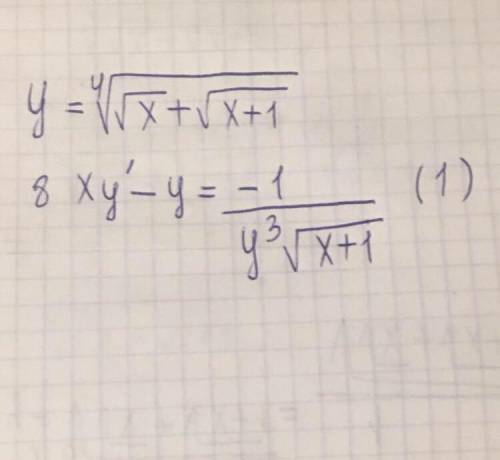 y = ∜(√x + √(x+1))
8 xy' − y = −1 / (y³√(x+1)) (1)